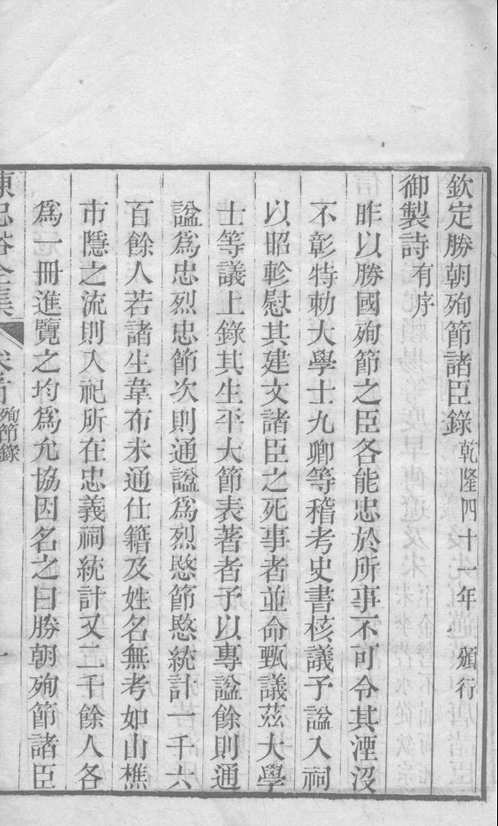 欽定勝朝殉節諸臣錄 乾隆四十一年 頒行
御製詩 有序
昨以勝國殉節之臣各能忠於所事不可令其湮沒
不彰特勅大學士九卿等稽考史書核議予諡入祠
以昭軫慰其建文諸臣之死事者並命甄議茲大學
士等議上錄其生平大節表著者予以專諡餘則通
諡為忠烈忠節次則通諡為烈愍節愍統計一千六
百餘人若諸生韋布未通仕籍及姓名無考如山樵
市隱之流則入祀所在忠義祠統計又二千餘人各
為一冊進覽之均為允協因名之曰勝朝殉節諸臣
陳忠裕全集 卷首 殉節錄 一